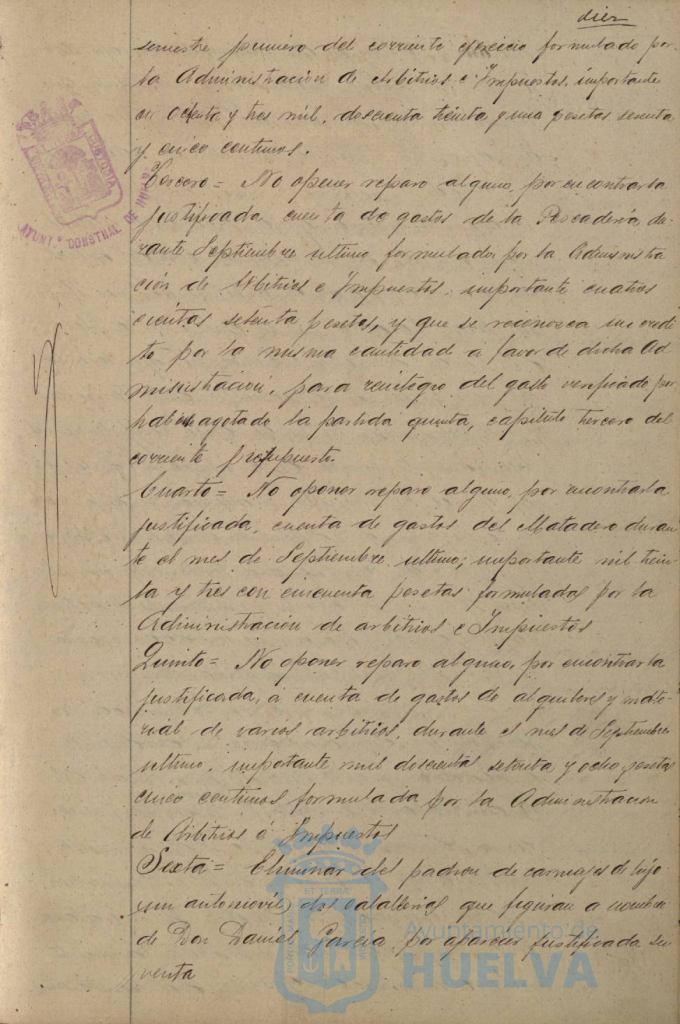 diez
semestre primero del corriente ejercicio formulado por
la Administración de Arbitrios e Impuestos, importante
ochenta y tres mil, doscienta treinta y una pesetas
y cinco centimos.
Tercero = No oponer reparo alguno, por encontrarla
justificada cuenta de gastos de la Pescadería, du-
rante Septiembre ultimo formulada por la Administra
ción de Arbitrios e Impuestos, importante cuatro
cientas setenta pesetas, y que se reconozca un credi
to por la misma cantidad a favor de dicha Ad
ministracion, para reintegro del gasto verificado por
haberse agotado la partida quinta, capitulo tercero del
corriente presupuesto.
Cuarto = No oponer reparo alguno, por encontrarla
justificada, cuenta de gastos del Matadero duran
te el mes de Septiembre ultimo; importante mil trein
ta y tres con cincuenta pesetas formuladas por la
Administración de arbitrios e Impuestos
Quinto = No oponer reparo alguno, por encontrarla
justificada, a cuenta de gastos de alquileres y mate-
rial de varios arbitrios, durante el mes de Septiembre
ultimo, importante mil doscientas setenta y ocho pesetas
cinco centimos formulada por la Administracion
de Arbitrios é Impuestos
Sexta = Eliminar del padron de carruajes de lujo
un automovil, dos caballerias que figuran a nombre
de Don Daniel Garcia, por aparecer justificada su
venta
AYUNT.º CONSTNAL DE HUELVA
Ayuntamiento de
HUELVA